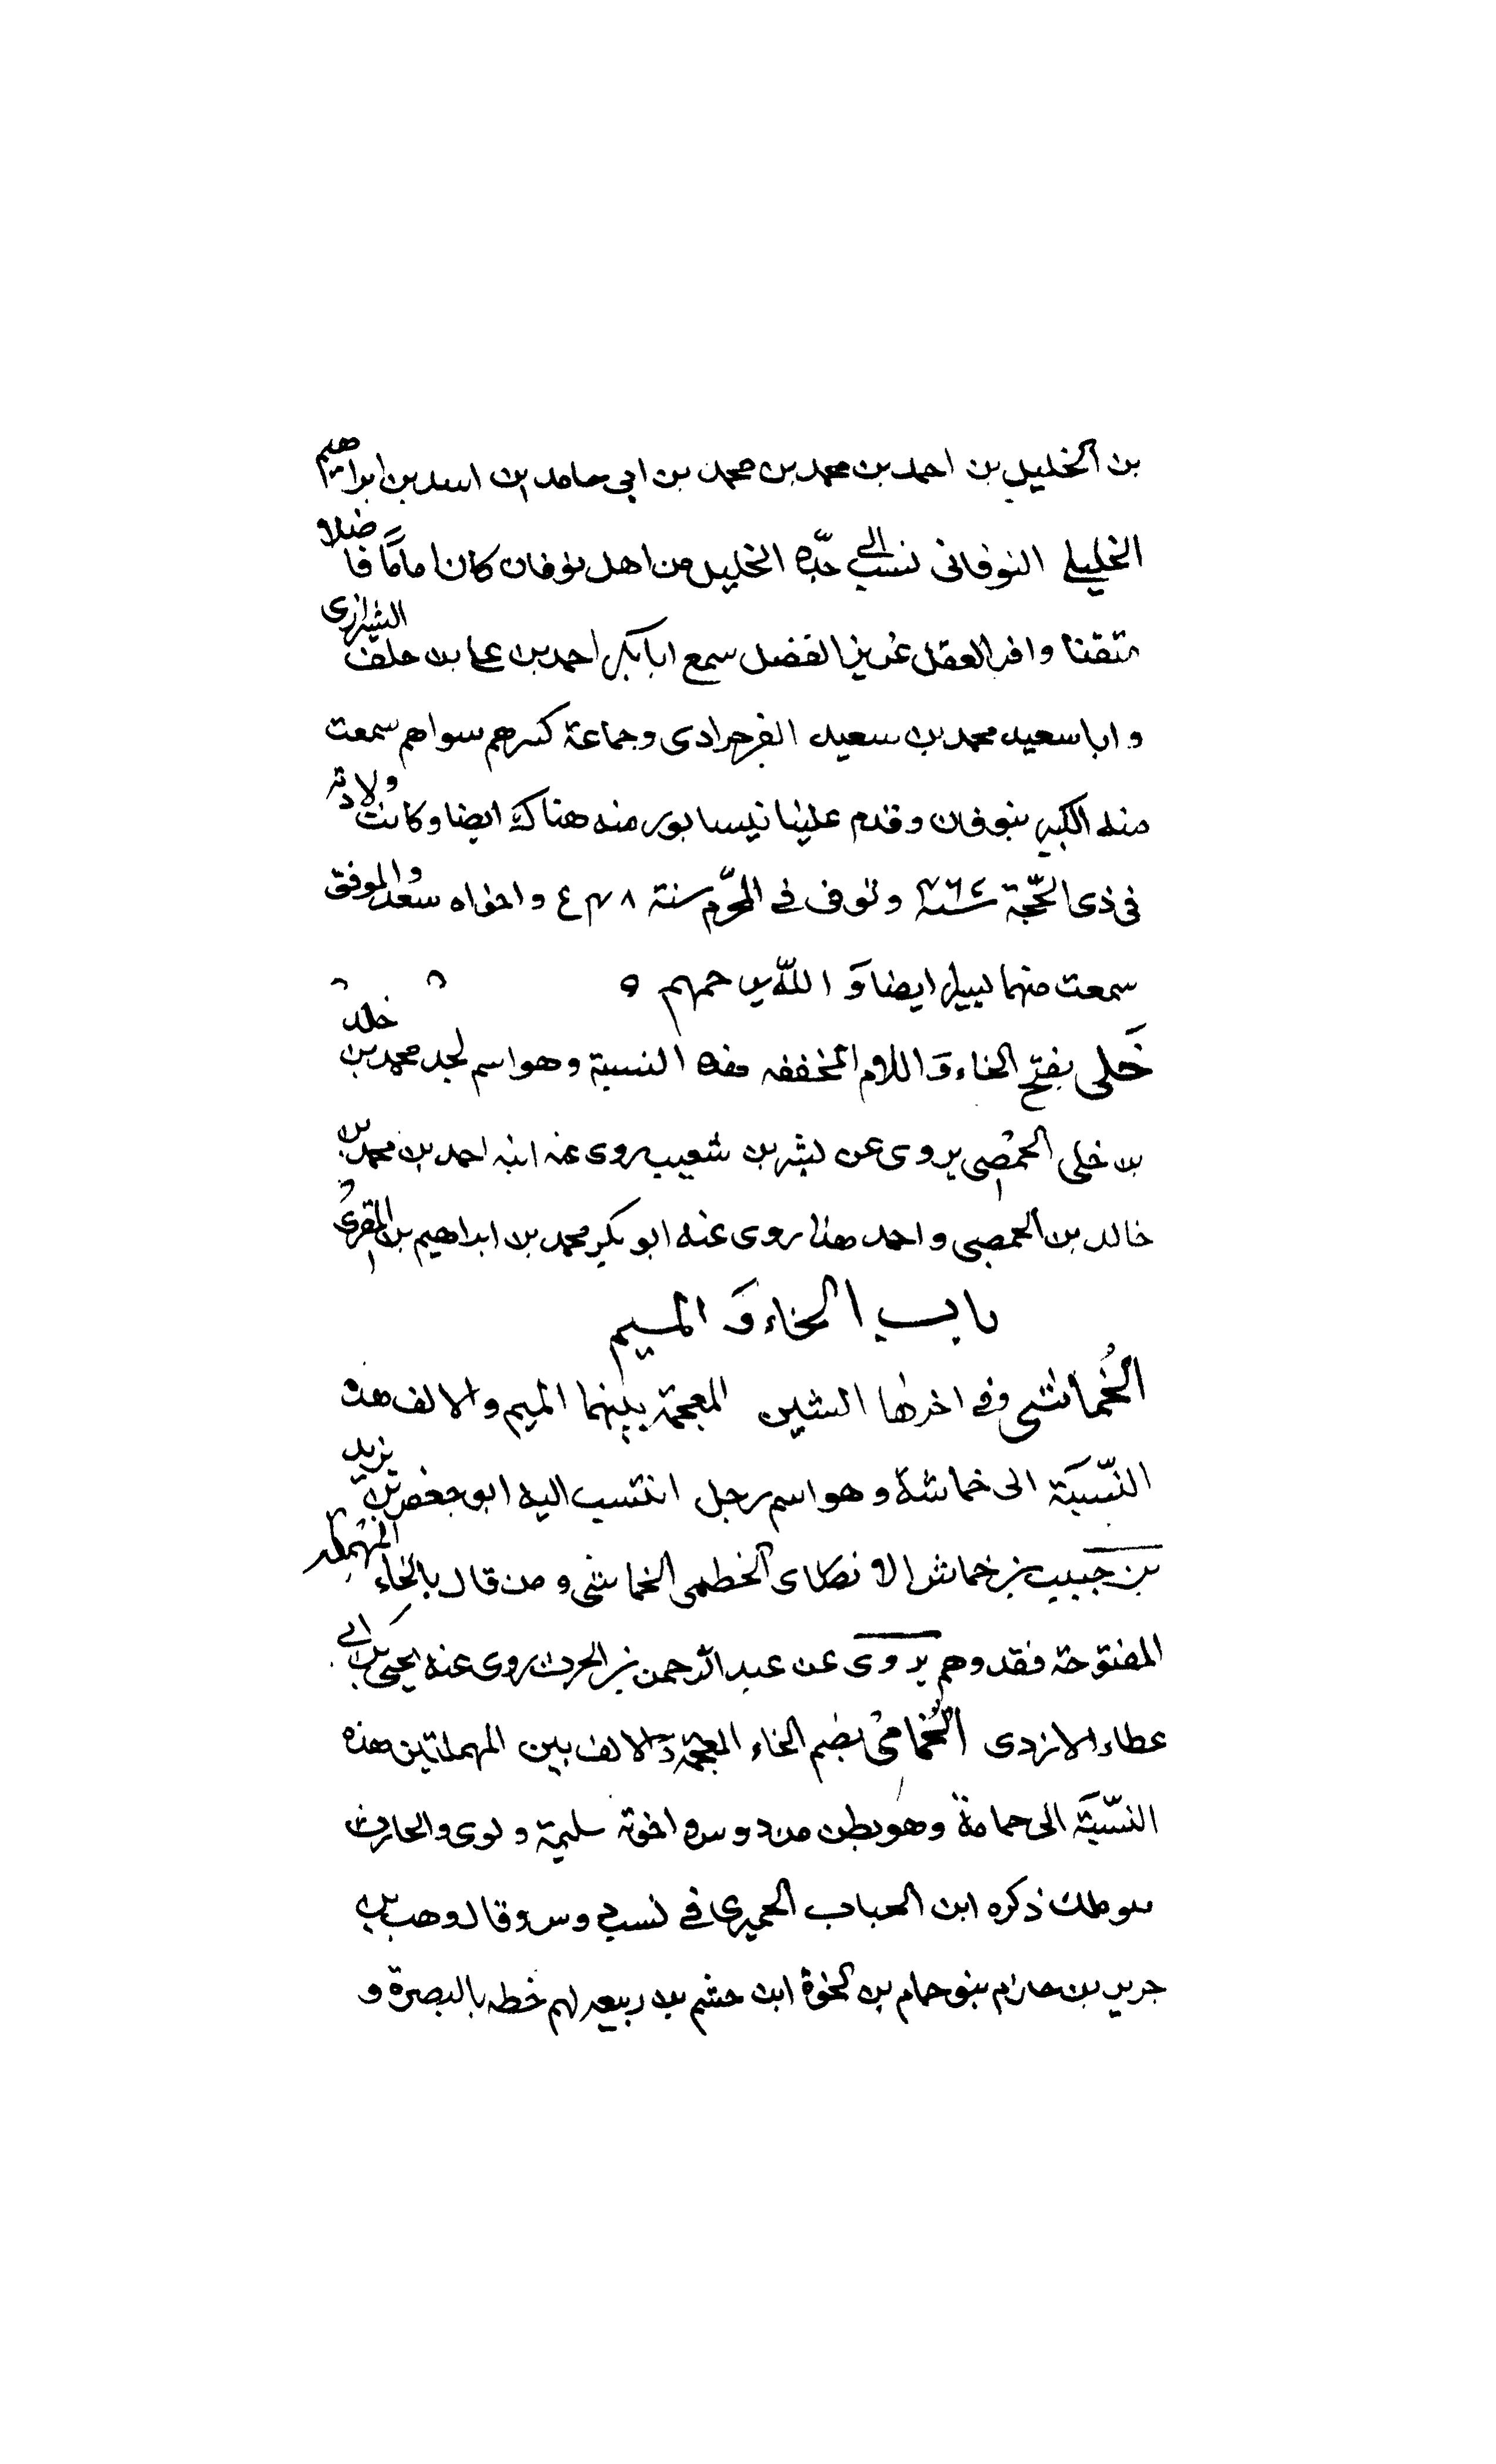 بن الخليل بن احمد بن محمد بن محمد بن ابي حامد بن اسعد بن ابراهيم
الخليلي النوقاني نسب الى جدّه الخليل من اهل نوقان كان اماما فاضلا
متقنا وافر العقل غزير الفضل سمع ابا بكر احمد بن على بن خلف الشيرازى
و ابا سعيد محمد بن سعيد الفرخرادى وجماعة كبيرهم سواهم سمعت
منه الكبير بنوقان وقدم علينا نيسابور منه هناك ايضا وكانت ولادته
فى ذى الحّجة سنة ٤٦٧ وتوفى فى المحرّم سنة ٥٤٨ واخواه سعد والموفق
سمعت منهما ايضا وَ اللّه يرحمهم ه
خَلى بفتح الخاء وَ اللام المخففه هذه النسبة وهو اسم لجد محمد بن خلد
بن خلى الحمصى يروى عن بشر بن شعيب روى عنه ابنه احمد بن محمد بن
خالد بن الحمصى واحمد هذا روى عنه ابو بكر محمد بن ابراهيم بن المقرئ
باب الخاء وَ الميم
الخُماشى وفى اخرها الشين المعجمة بينهما الميم والالف هذه
النّسبَة الى خماشة وهو اسم رجل انتسب اليه ابو جعفر بن يزيد
بن حبيب بن خماش الانصارى الخطمى الخماشى ومن قال بالحاء المهمله
المفتوحة فقد وهم يروى عن عبد الرحمن بن الحرث روى عنه يحيى بن ابى
عطاء الازدى الخُمامى بضم الخاء المعجمة والالف بين المهملتين هذه
النّسبَة الى حمامة وهو بطن من دوس واخوته سليمة ولوى والحارث
ذكره ابن الحباب الحميرى فى نسب دوس وقال وهب بن
جرير بن حازم بنو حمام بن لخوة ابن جشم بن ربيعه لهم خطه بالبصرة و